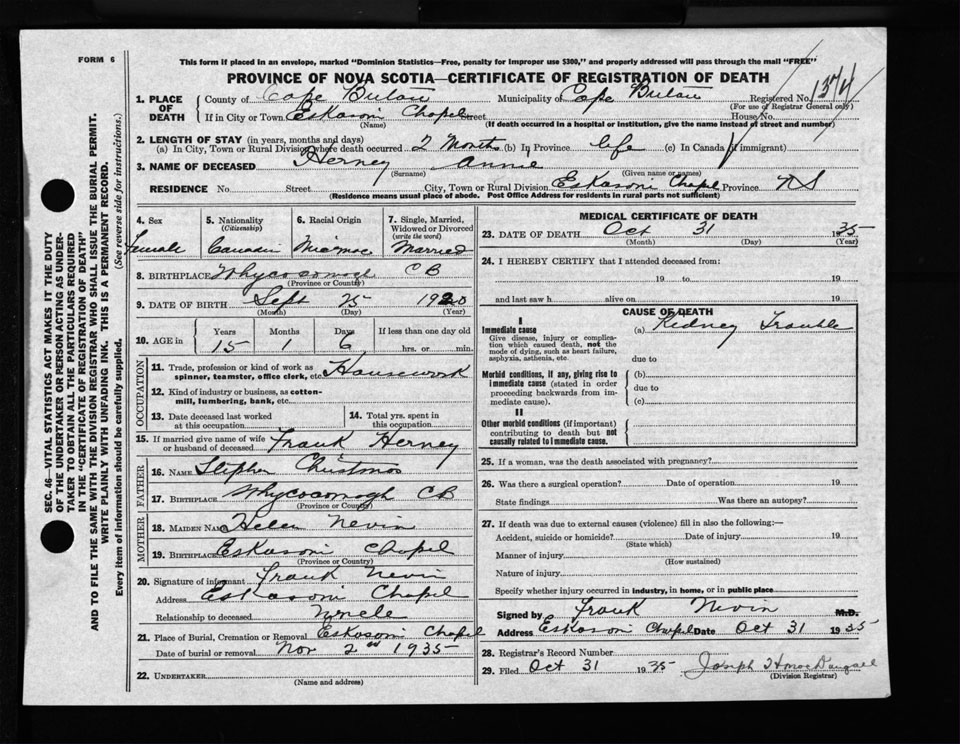 FORM 6
This form if placed in an envelope, marked "Dominion Statistics—Free, penalty for improper use $300," and properly addressed will pass through the mail "FREE"
PROVINCE OF NOVA SCOTIA—CERTIFICATE OF REGISTRATION OF DEATH
1. PLACE OF DEATH County of Cape Breton Municipality of Cape Breton Registered No. 1374
(For use of Registrar General only)
If in City or Town Eskasoni Chapel Street House No.
(Name) (If death occurred in a hospital or institution, give the name instead of street and number)
2. LENGTH OF STAY (in years, months and days)
(a) In City, Town or Rural Division where death occurred 2 Months (b) In Province life (c) In Canada (if immigrant)
3. NAME OF DECEASED Herney Annie
(Surname) (Given name or names)
RESIDENCE No. Street City, Town or Rural Division Eskasoni Chapel Province NS
(Residence means usual place of abode. Post Office Address for residents in rural parts not sufficient)
4. Sex Female
5. Nationality (Citizenship) Canadian
6. Racial Origin Micmac
7. Single, Married, Widowed or Divorced (write the word) Married
8. BIRTHPLACE Whycocomagh CB
(Province or Country)
9. DATE OF BIRTH Sept 25 1920
(Month) (Day) (Year)
10. AGE in Years Months Days If less than one day old
15 1 6 hrs. or min.
OCCUPATION
11. Trade, profession or kind of work as spinner, teamster, office clerk, etc. Housework
12. Kind of industry or business, as cotton-mill, lumbering, bank, etc.
13. Date deceased last worked at this occupation
14. Total yrs. spent in this occupation
15. If married give name of wife or husband of deceased Frank Herney
FATHER
16. NAME Stephen Christmas
17. BIRTHPLACE Whycocomagh CB
(Province or Country)
MOTHER
18. MAIDEN NAME Helen Nevin
19. BIRTHPLACE Eskasoni Chapel
(Province or Country)
20. Signature of informant Frank Nevin
Address Eskasoni Chapel
Relationship to deceased Uncle
21. Place of Burial, Cremation or Removal Eskasoni Chapel
Date of burial or removal Nov 2nd 1935
22. UNDERTAKER
(Name and address)
MEDICAL CERTIFICATE OF DEATH
23. DATE OF DEATH Oct 31 1935
(Month) (Day) (Year)
24. I HEREBY CERTIFY that I attended deceased from:
19 to 19
and last saw h alive on 19
CAUSE OF DEATH
I
Immediate cause (a) Kidney Trouble
Give disease, injury or complication which caused death, not the mode of dying, such as heart failure, asphyxia, asthenia, etc.
due to
Morbid conditions, if any, giving rise to immediate cause (stated in order proceeding backwards from immediate cause).
(b)
due to
(c)
II
Other morbid conditions (if important) contributing to death but not causally related to immediate cause.
25. If a woman, was the death associated with pregnancy?
26. Was there a surgical operation? Date of operation 19
State findings Was there an autopsy?
27. If death was due to external causes (violence) fill in also the following:—
Accident, suicide or homicide? Date of injury 19
(State which)
Manner of injury
(How sustained)
Nature of injury
Specify whether injury occurred in industry, in home, or in public place
Signed by Frank Nevin M.D.
Address Eskasoni Chapel Date Oct 31 1935
28. Registrar's Record Number
29. Filed Oct 31 1935
(Division Registrar)
SEC. 46—VITAL STATISTICS ACT MAKES IT THE DUTY
OF THE UNDERTAKER OR PERSON ACTING AS UNDER-
TAKER TO OBTAIN ALL THE PARTICULARS REQUIRED
IN THE "CERTIFICATE OF REGISTRATION OF DEATH"
AND TO FILE THE SAME WITH THE DIVISION REGISTRAR WHO SHALL ISSUE THE BURIAL PERMIT.
WRITE PLAINLY WITH UNFADING INK. THIS IS A PERMANENT RECORD.
Every item of information should be carefully supplied. (See reverse side for instructions.)